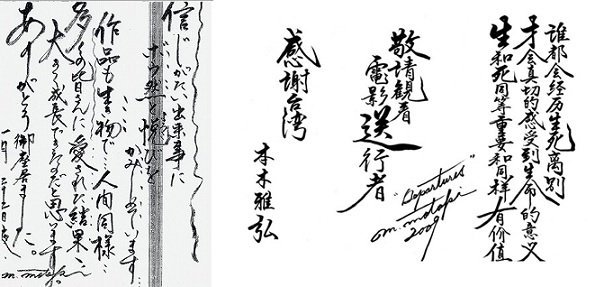 信じがたい出来事に
ボウ然と悦びを
かみしめています…
作品も生き物で…人間同様…
多くの皆さんに愛された結果、
大きく成長できたのだと思います。
ありがとう御座居ました。
m. motoki
誰都会经历生死离别
才会真切的感受到生命的意义
生和死同等重要和同样有价值
敬請観看
電影送行者
"Departures"
m. motoki
2009
感謝台湾
本木雅弘